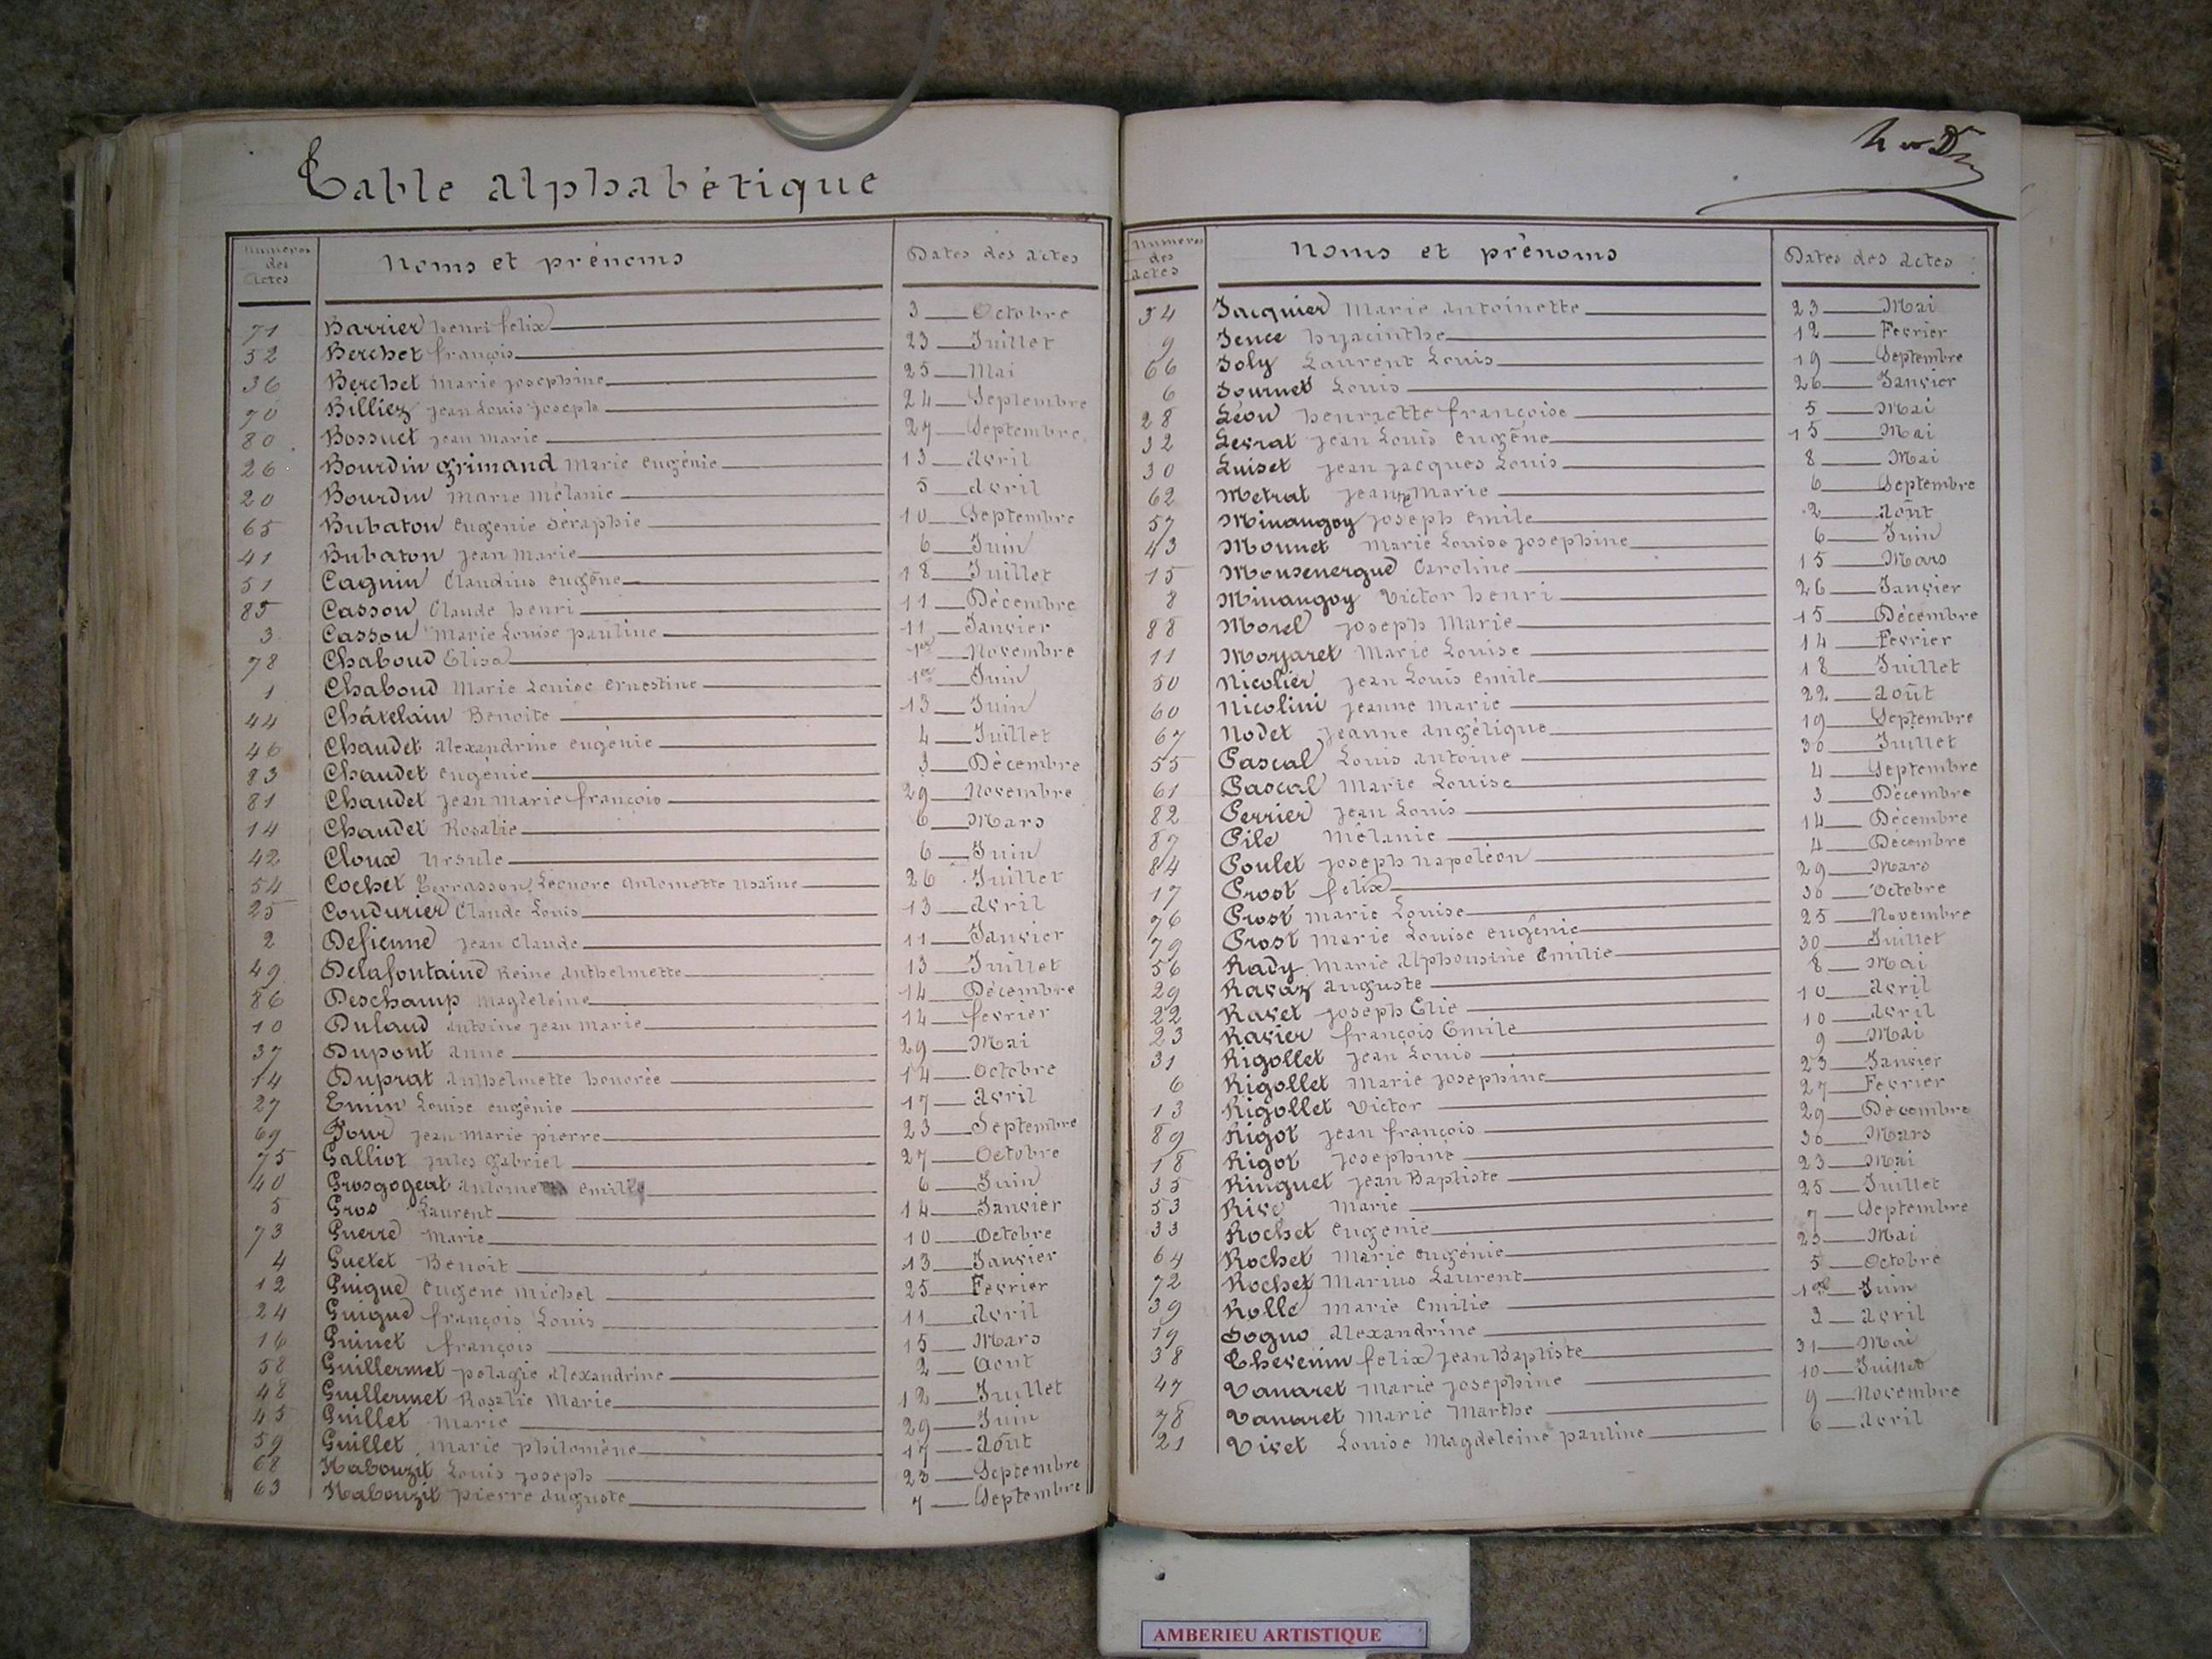 Table alphabétique
Numéros des Actes Noms et prénoms Dates des actes
71 Barrier henri felix 3 Octobre
52 Berchet françois 23 Juillet
36 Berchet Marie josephine 25 Mai
70 Billiez jean Louis joseph 24 Septembre
80 Bossuet jean Marie 27 Septembre
26 Bourdin grimand Marie eugénie 13 avril
20 Bourdin Marie Mélanie 5 avril
65 Bubaton eugenie Séraphie 10 Septembre
41 Bubaton jean Marie 6 Juin
51 Cagnin Claudius eugène 18 Juillet
85 Casson Claude henri 11 Décembre
3 Casson Marie Louise pauline 11 Janvier
78 Chaboud Elisa 1er Novembre
1 Chaboud Marie Louise ernestine 1er Juin
44 Châtelain Benoite 13 Juin
46 Chaudet alexandrine eugènie 4 Juillet
83 Chaudet eugènie 3 Décembre
81 Chaudet jean marie françois 29 Novembre
14 Chaudet Rosalie 6 Mars
42 Cloux ursule 6 Juin
54 Cochet Terrasson, Léonore antoinette 26 Juillet
25 Condurier Claude Louis 13 avril
2 Defienne jean Claude 11 Janvier
49 Delafontaine Reine anthelmette 13 Juillet
86 Deschamp magdeleine 14 Décembre
10 Dulaud antoine jean Marie 14 fevrier
37 Dupont anne 29 Mai
14 Duprat anthelmette honorée 14 Octobre
27 Emin Louise eugènie 17 avril
69 Four jean Marie pierre 23 Septembre
75 Galliot jules gabriel 27 Octobre
40 Grosgogeat emilie 6 Juin
5 Gros Laurent 14 Janvier
73 Guerre Marie 10 Octobre
4 Guetet Benoit 13 Janvier
12 Guigue eugene michel 25 Fevrier
24 Guigue françois Louis 11 avril
16 Guinet françois 15 Mars
58 Guillermet pelagie alexandrine 2 aout
48 Guillermet Rosalie Marie 12 Juillet
45 Guillet Marie 29 Juin
59 Guillet Marie philomène 17 août
68 Nabouzit Louis joseph 23 Septembre
63 Nabouzit pierre auguste 7 Septembre
Numéros des actes Noms et prénoms Dates des actes
34 Jacquier Marie antoinette 23 Mai
9 Jence hyacinthe 12 Fevrier
66 Joly Laurent Louis 19 Septembre
6 Journet Louis 26 Janvier
28 Léon henriette françoise 5 Mai
32 Levrat jean Louis eugène 15 Mai
30 Luiset jean jacques Louis 8 Mai
62 Metrat jean Marie 6 Septembre
57 Minangoy joseph emile 2 août
43 Monnet Marie Louise josephine 6 Juin
15 Monsenergue Caroline 15 Mars
8 Minangoy Victor henri 26 Janvier
88 Morel joseph Marie 15 Décembre
11 Morjaret Marie Louise 14 Fevrier
50 Nicolier jean Louis emile 18 Juillet
60 Nicolini jeanne marie 22 août
67 Nodet jeanne angélique 19 Septembre
55 Pascal Louis antoine 30 Juillet
61 Pascal Marie Louise 4 Septembre
82 Perrier jean Louis 3 Décembre
87 Pile Mélanie 14 Décembre
84 Poulet joseph napoléon 4 Décembre
17 Prost felix 29 Mars
76 Prost marie Louise 30 Octobre
79 Prost Marie Louise eugènie 25 Novembre
56 Rady Marie alphonsine Emilie 30 Juillet
29 Ravaz auguste 8 Mai
22 Ravet joseph Elie 10 avril
23 Ravier françois Emile 10 avril
31 Rigollet jean Louis 9 Mai
6 Rigollet Marie josephine 23 Janvier
13 Rigollet Victor 27 Fevrier
89 Rigot jean françois 29 Décembre
18 Rigot josephine 30 Mars
35 Ringuet jean Baptiste 23 Mai
53 Rive Marie 25 Juillet
33 Rochet eugenie 7 Septembre
64 Rochet Marie eugènie 23 Mai
72 Rochet Marius Laurent 5 Octobre
39 Rolle Marie emilie 1er Juin
19 Sogno alexandrine 3 avril
38 Thevenin felix jean Baptiste 31 Mai
47 Vanaret Marie josephine 10 Juillet
78 Vanaret Marie Marthe 9 Novembre
21 Vivet Louise Magdeleine pauline 6 avril
AMBERIEU ARTISTIQUE